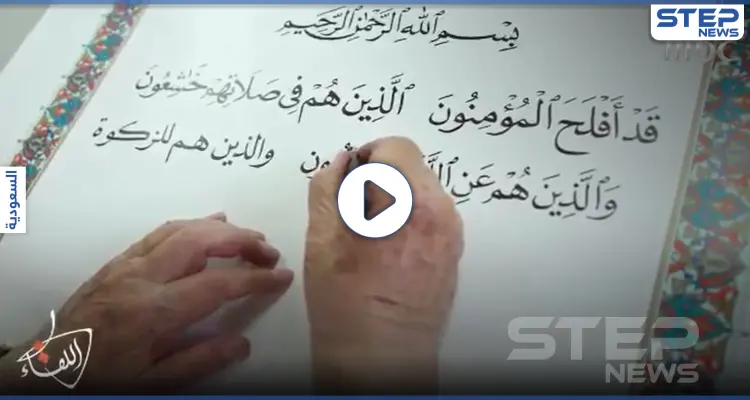 بِسْمِ ٱللَّهِ ٱلرَّحْمَٰنِ ٱلرَّحِيمِ
قَدْ أَفْلَحَ ٱلْمُؤْمِنُونَ ٱلَّذِينَ هُمْ فِى صَلَاتِهِمْ خَٰشِعُونَ
وَٱلَّذِينَ هُمْ عَنِ والذين هم للزكوة
STEP
NEWS
mbc
السعودية
اللقاء
STEP
NEWS